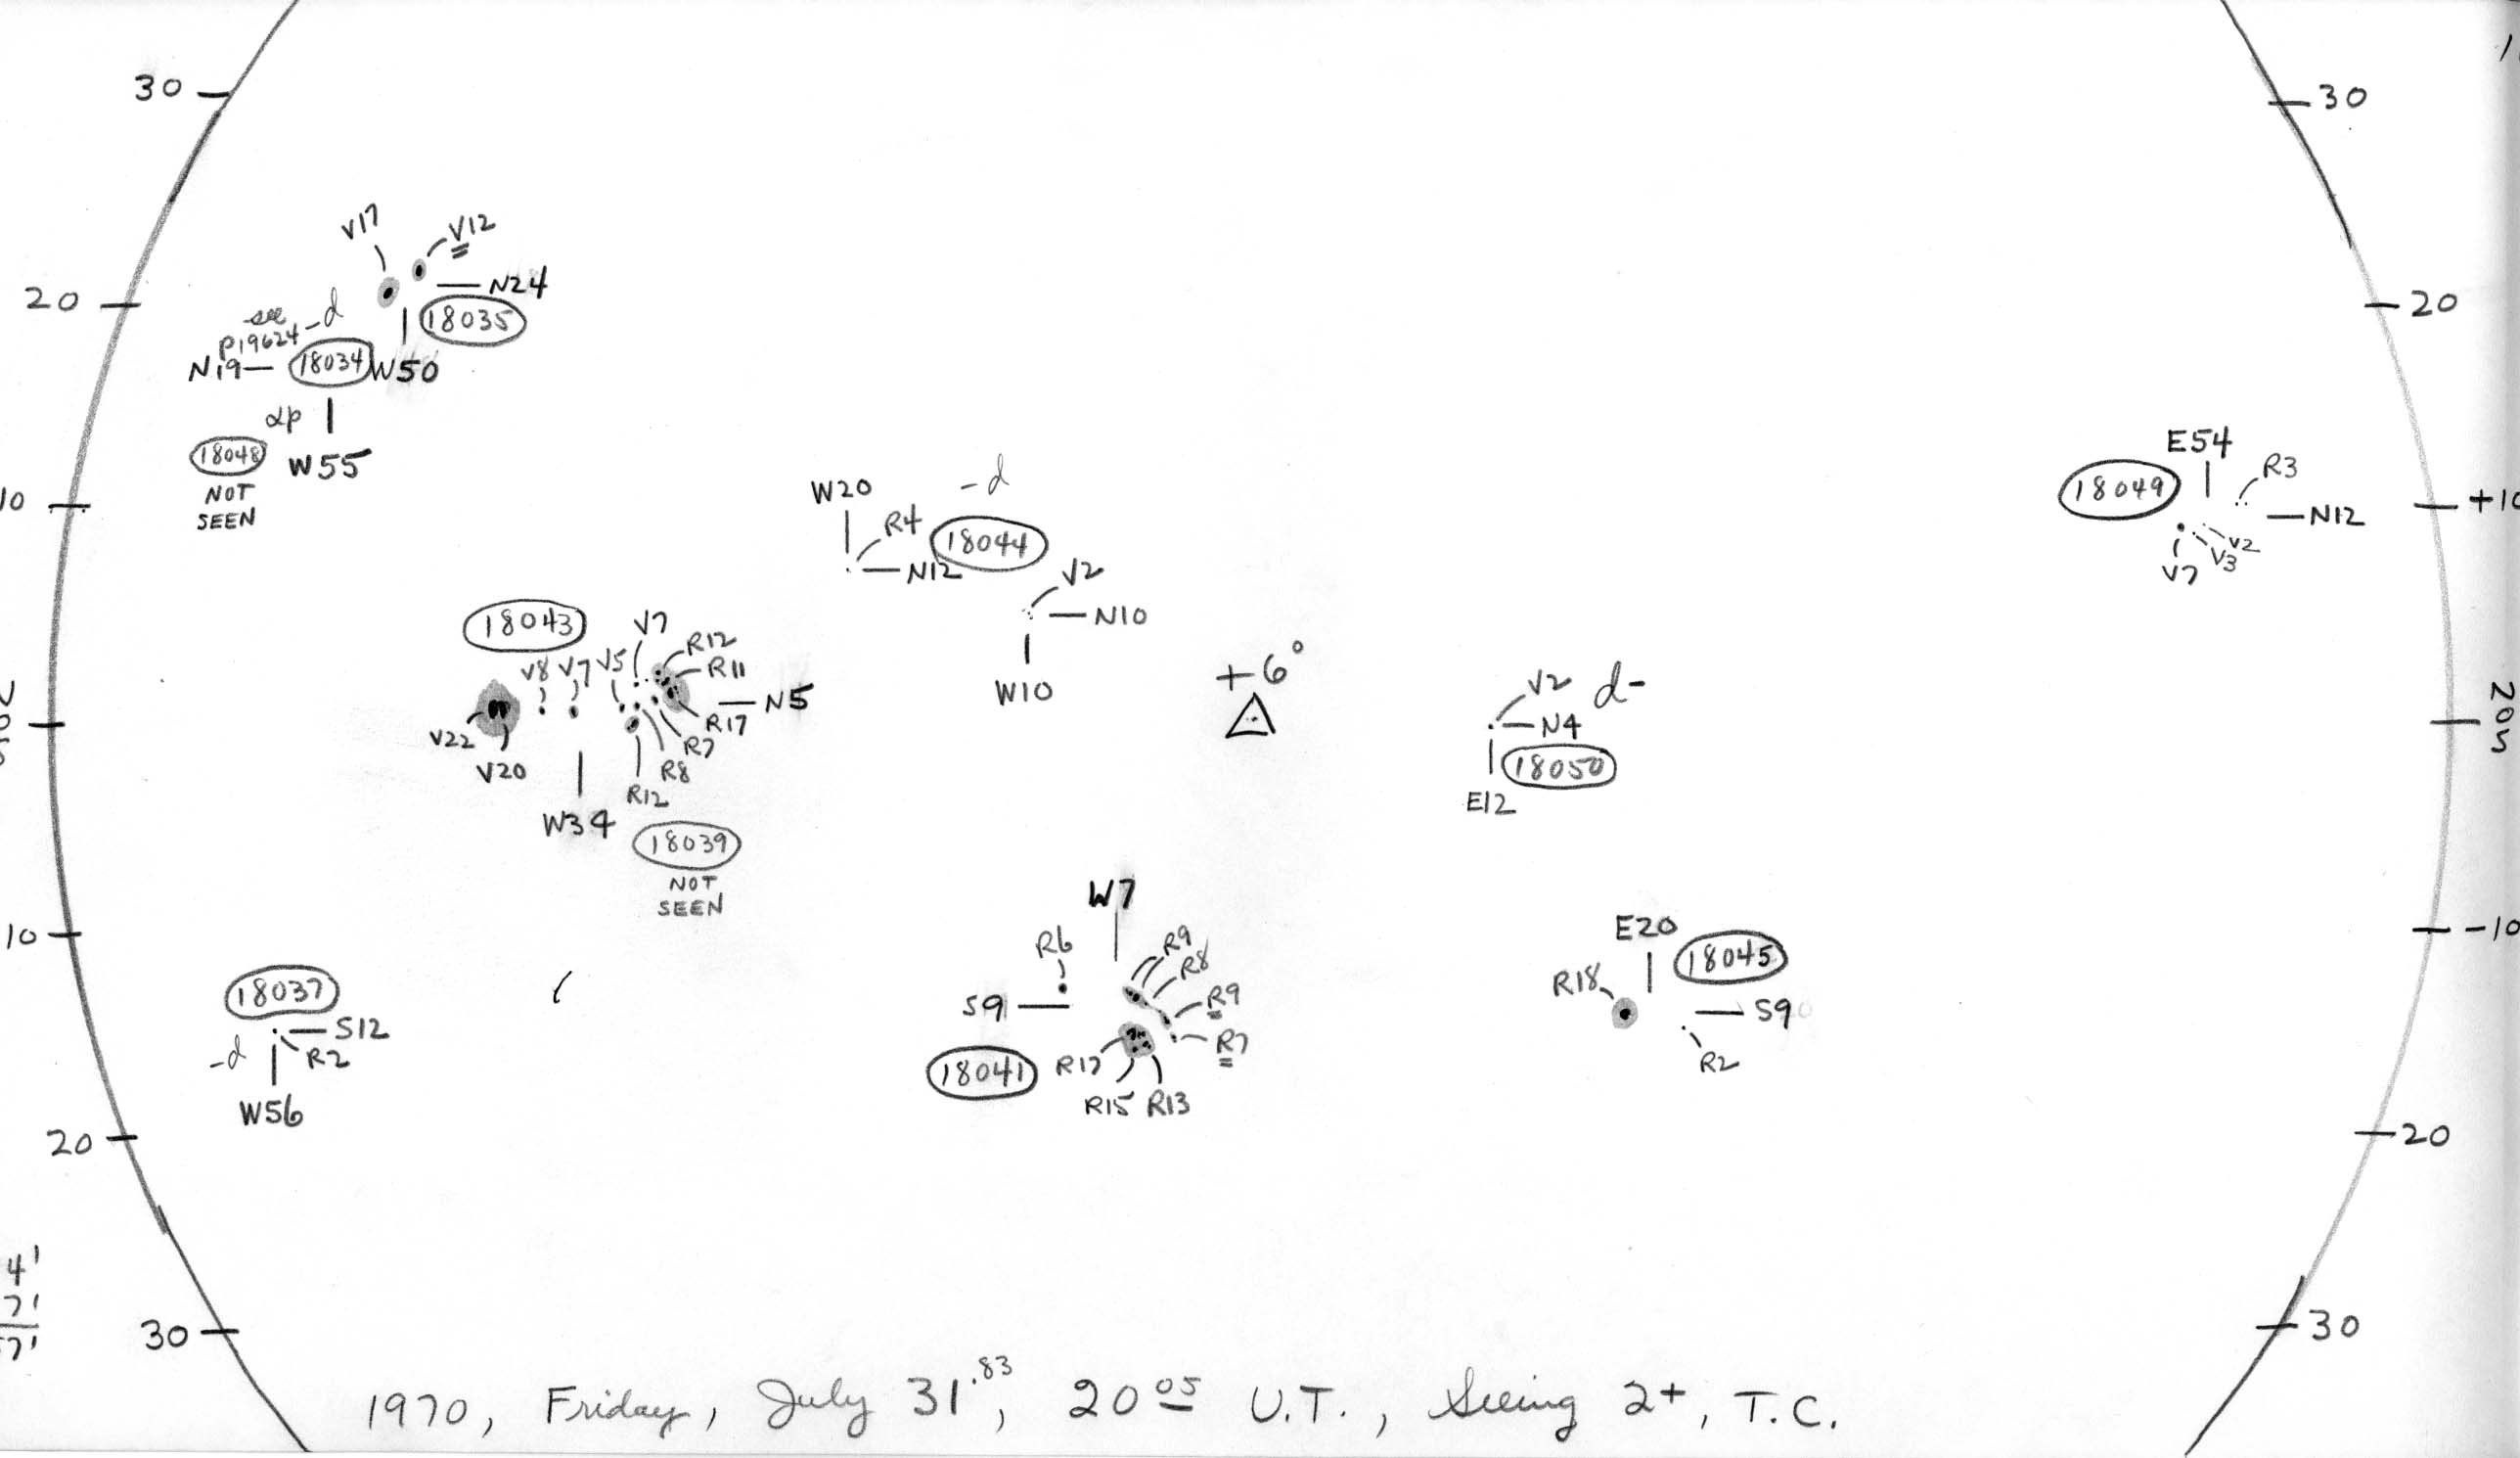 30
30
V17
V12
N24
20
20
18035
see
p19624
-d
N19
18034
W50
αp
18048
W55
NOT
SEEN
10
W20
-d
R4
18044
N12
V2
N10
W10
E54
R3
18049
+10
N12
V2
V3
V7
18043
V7
R12
V8
V7
V5
R11
N5
R17
V22
R7
V20
R8
R12
W34
18039
NOT
SEEN
+6°
V2
d-
N4
18050
E12
205
10
W7
R9
R6
R8
S9
R9
R7
18041
R17
R15
R13
E20
18045
R18
S9
R2
-10
18037
S12
-d
R2
W56
20
20
4'
7'
7'
30
30
1970, Friday, July 31.83, 20 05 U.T., Seeing 2+, T.C.